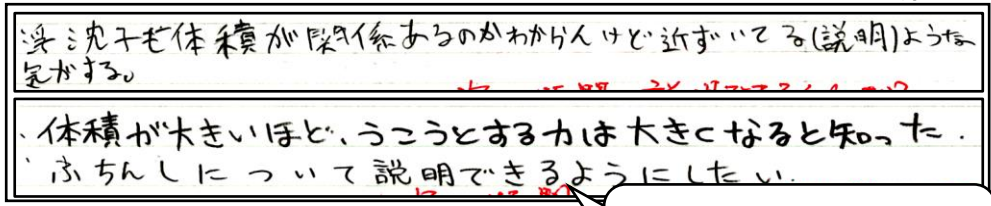 浮沈子も体積が関係あるのかわからんけど近ずいてる(説明)ような
気がする。
・体積が大きいほど、うこうとする力は大きくなると知った.
ふちんしについて説明できるようにしたい.